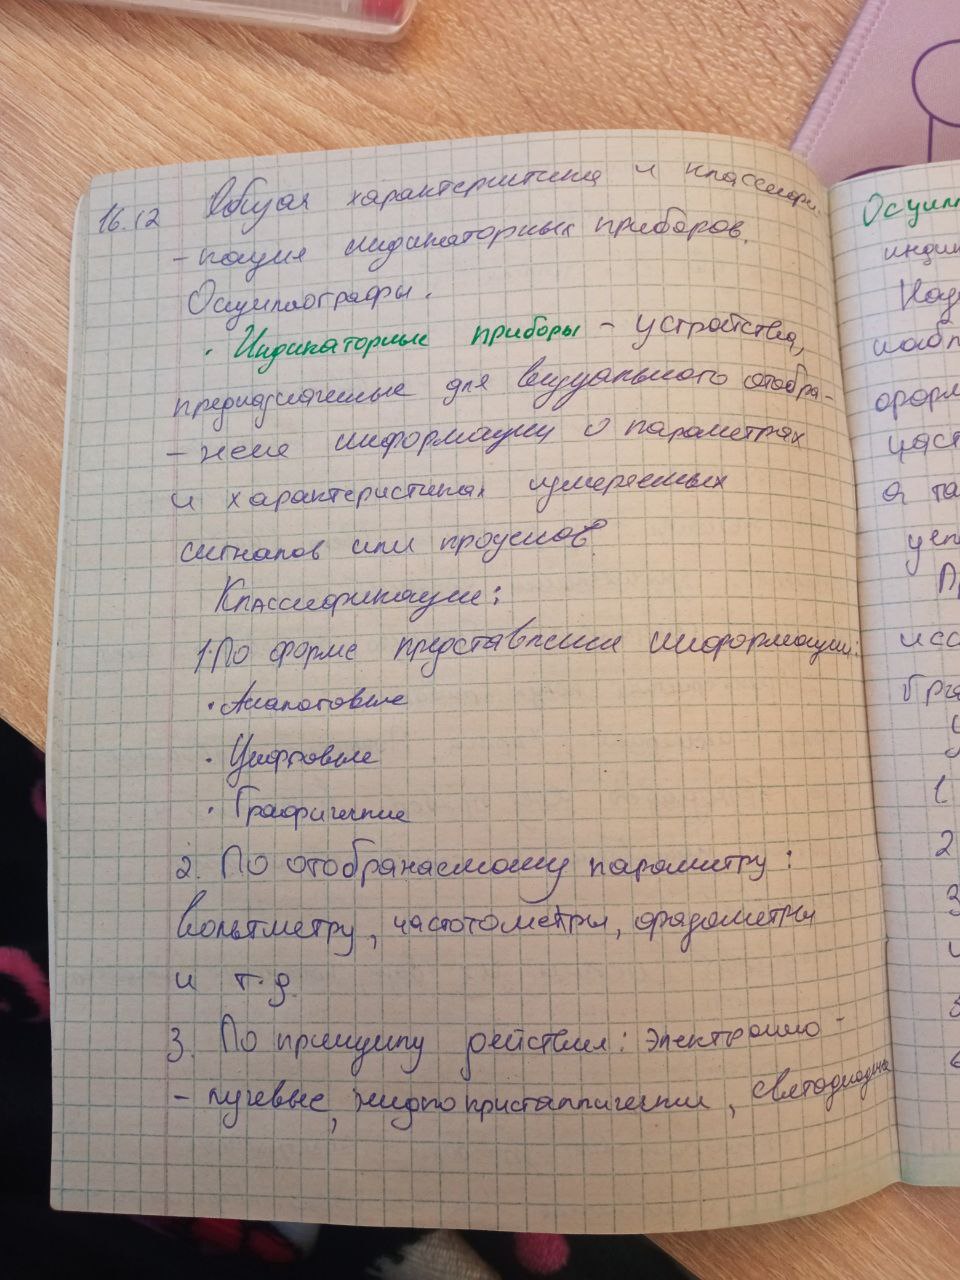 16.12 Общая характеристика и классифи-
- кация индикаторных приборов.
Осциллографы.
• Индикаторные приборы - устройства,
предназначенные для визуального отобра-
- жения информации о параметрах
и характеристиках измеряемых
сигналов или процессов.
Классификации:
1. По форме представления информации:
• Аналоговые
• Цифровые
• Графические
2. По отображаемому параметру:
вольтметры, частотометры, фазометры
и т.д.
3. По принципу действия: электронно-
- лучевые, жидкокристаллические, светодиодные
Осцилл
инди
наб
форм
част
а та
Пр
исс
1
2
3